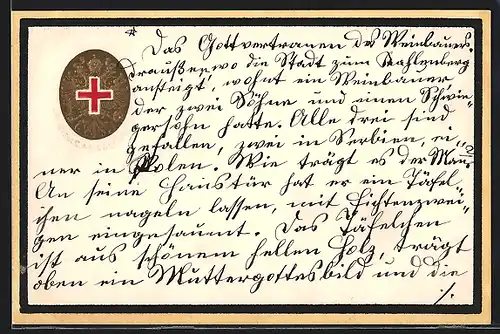 * Das Gottvertrauen des Weinbauers.
Draußen, wo die Stadt zum Kahlenberg
ansteigt, wohnt ein Weinbauer
der zwei Söhne und einen Schwie-
gersohn hatte. Alle drei sind
gefallen, zwei in Serbien, ei-
ner in Polen. Wie trägt es der Mann?
An seine Haustür hat er ein Täfel-
chen nageln lassen, mit Fichtenzwei-
gen eingesäumt. Das Täfelchen
ist aus schönem hellen Holz, trägt
oben ein Muttergottesbild und die
./.